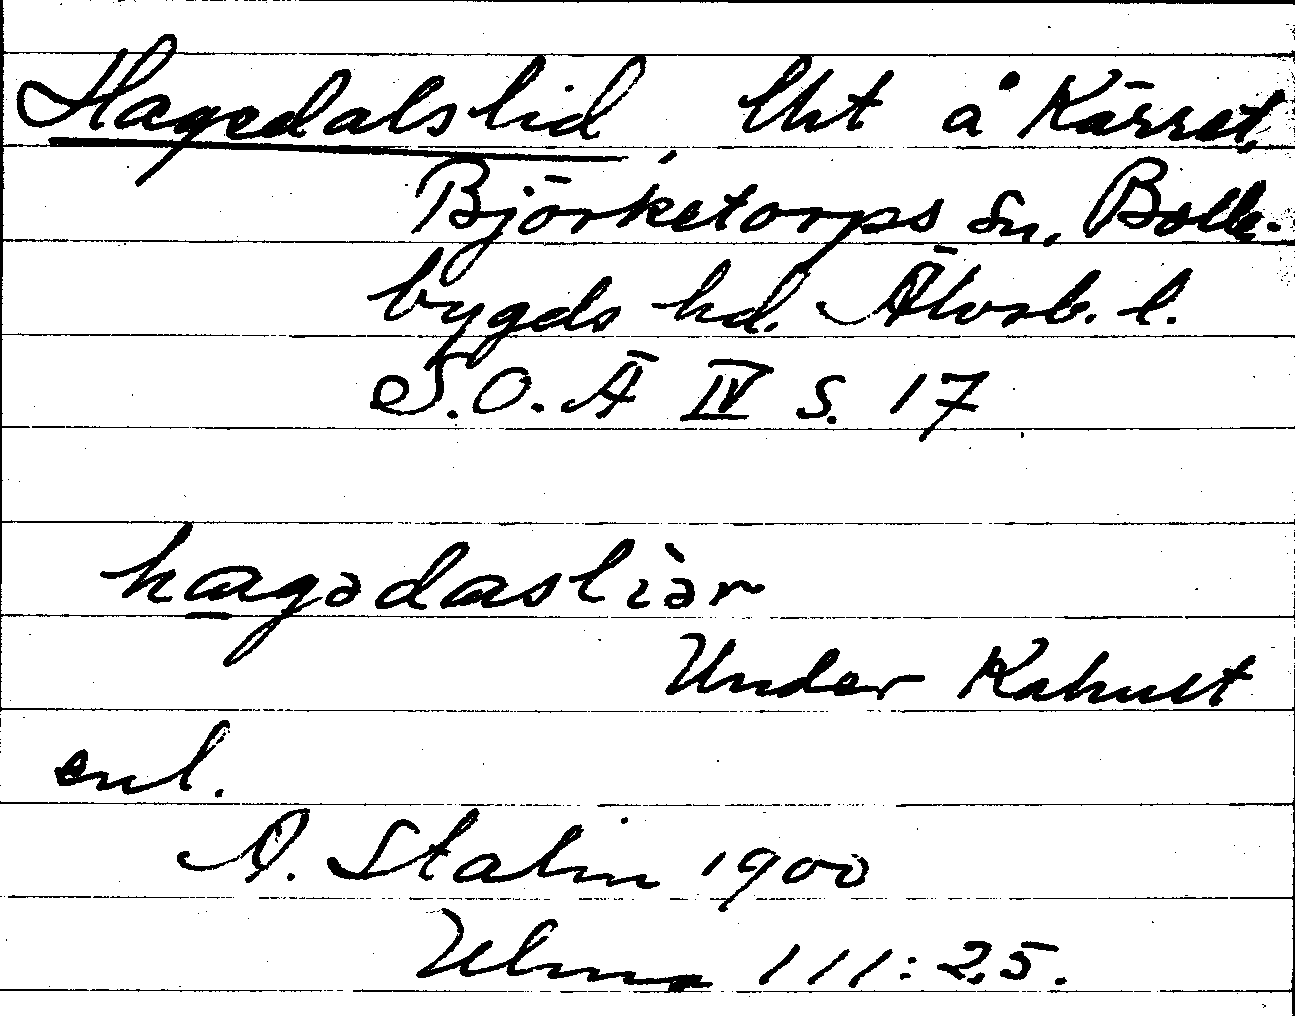 Hagedalslid, lht å Kärret,
Björketorps sn, Bolle-
bygds hd. Älvsb. l.
S.O.Ä IV S. 17
hagədasliər
Under Kahult
enl.
A. Stalin 1900
Ulma 111:25.